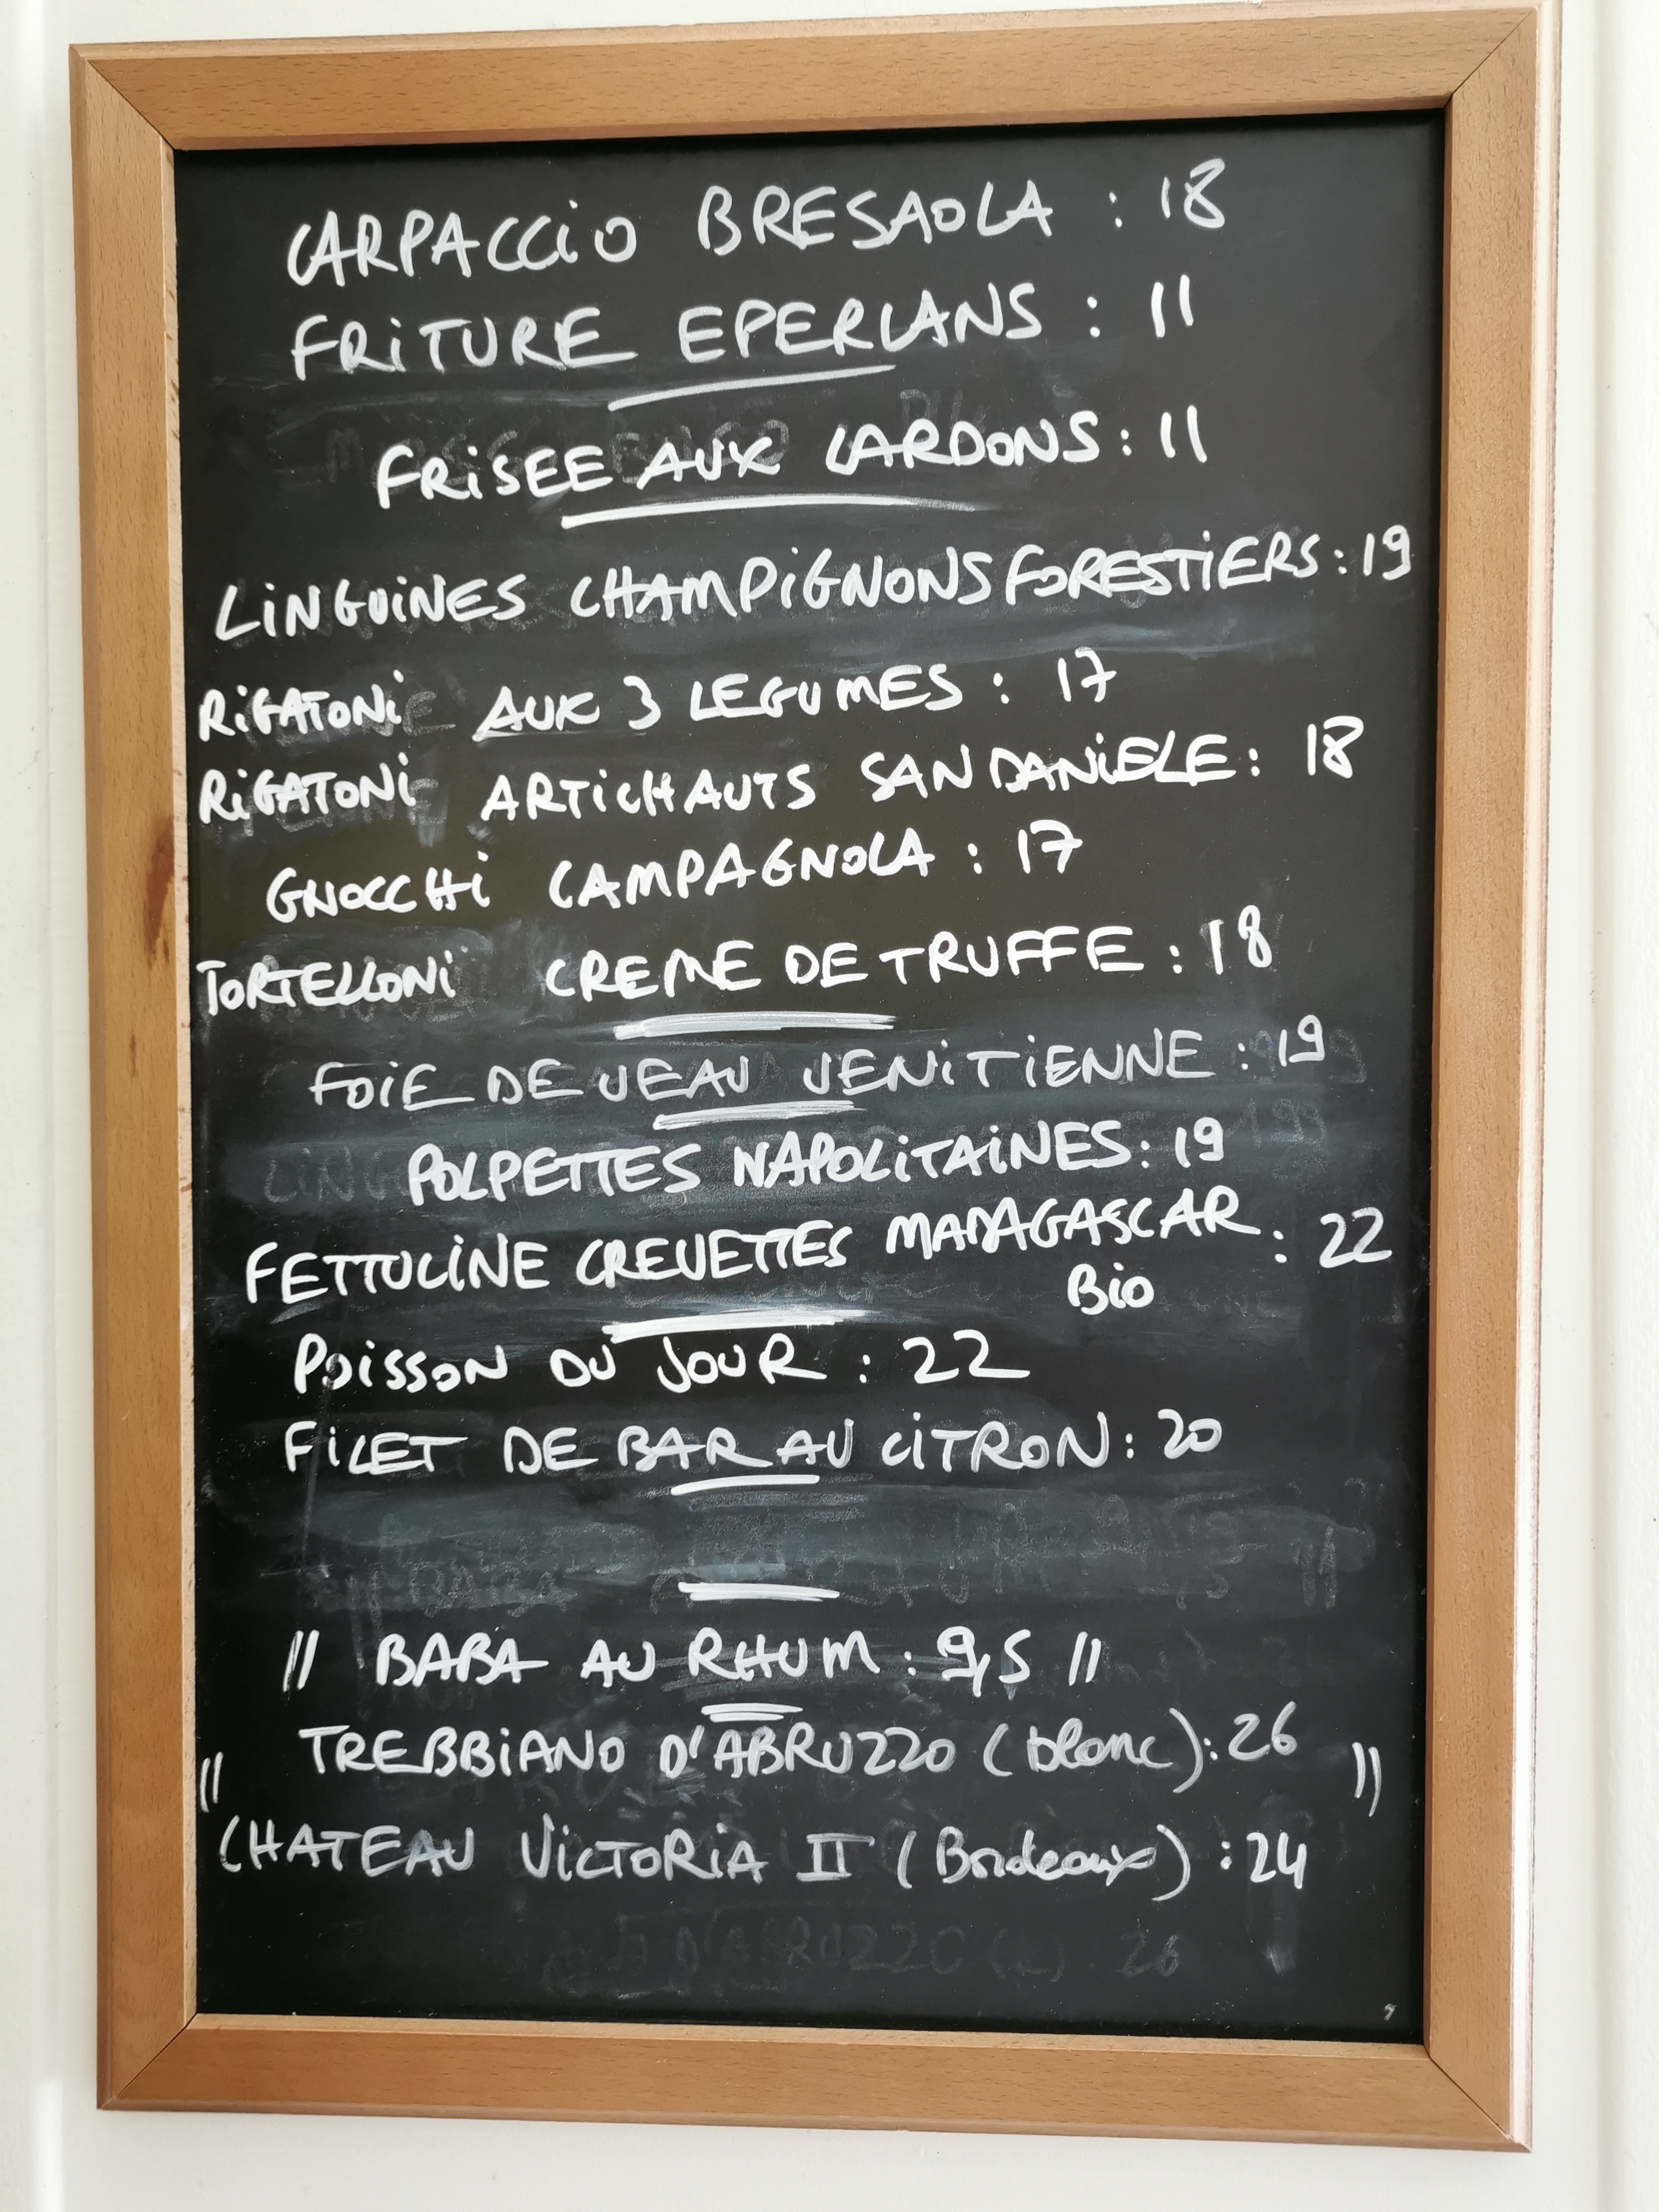 CARPACCIO BRESAOLA : 18
FRITURE EPERLANS : 11
FRISEE AUX LARDONS : 11
LINGUINES CHAMPIGNONS FORESTIERS : 19
RIGATONI AUX 3 LEGUMES : 17
RIGATONI ARTICHAUTS SAN DANIELE : 18
GNOCCHI CAMPAGNOLA : 17
TORTELLONI CREME DE TRUFFE : 18
FOIE DE VEAU VENITIENNE : 19
POLPETTES NAPOLITAINES : 19
FETTUCINE CREVETTES MADAGASCAR : 22
BIO
POISSON DU JOUR : 22
FILET DE BAR AU CITRON : 20
// BABA AU RHUM : 9,5 //
// TREBBIANO D'ABRUZZO (blanc) : 26 //
CHATEAU VICTORIA II (Bordeaux) : 24